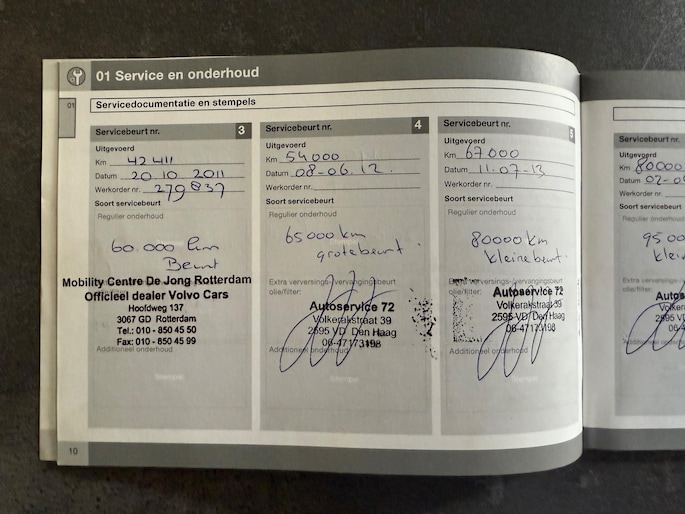 01 Service en onderhoud
01
Servicedocumentatie en stempels
Servicebeurt nr. 3
Uitgevoerd
Km 42 411
Datum 20.10.2011
Werkorder nr. 279837
Soort servicebeurt
Regulier onderhoud
60.000 km
Beurt
Mobility Centre De Jong Rotterdam
Officieel dealer Volvo Cars
Hoofdweg 137
3067 GD Rotterdam
Tel.: 010 - 850 45 50
Fax: 010 - 850 45 99
Additioneel onderhoud
Stempel
Servicebeurt nr. 4
Uitgevoerd
Km 54000
Datum 08-06.12.
Werkorder nr.
Soort servicebeurt
Regulier onderhoud
65000 km
grotebeurt
Extra verversings-/vervangingsbeurt
olie/filter:
Autoservice 72
Volkerakstraat 39
2595 VD Den Haag
06-47173198
Additioneel onderhoud
Stempel
Servicebeurt nr. 5
Uitgevoerd
Km 67000
Datum 11.07-13
Werkorder nr.
Soort servicebeurt
Regulier onderhoud
80000 km
kleinebeurt
Extra verversings-/vervangingsbeurt
olie/filter:
Autoservice 72
Volkerakstraat 39
2595 VD Den Haag
06-47173198
Additioneel onderhoud
Stempel
Servicebeurt nr.
Uitgevoerd
Km 80000
Datum 02-0
Werkorder nr.
Soort servicebeurt
Regulier onderhoud
95 00
klei
Extra
olie/filter:
Autos
Volke
2595
06-
10